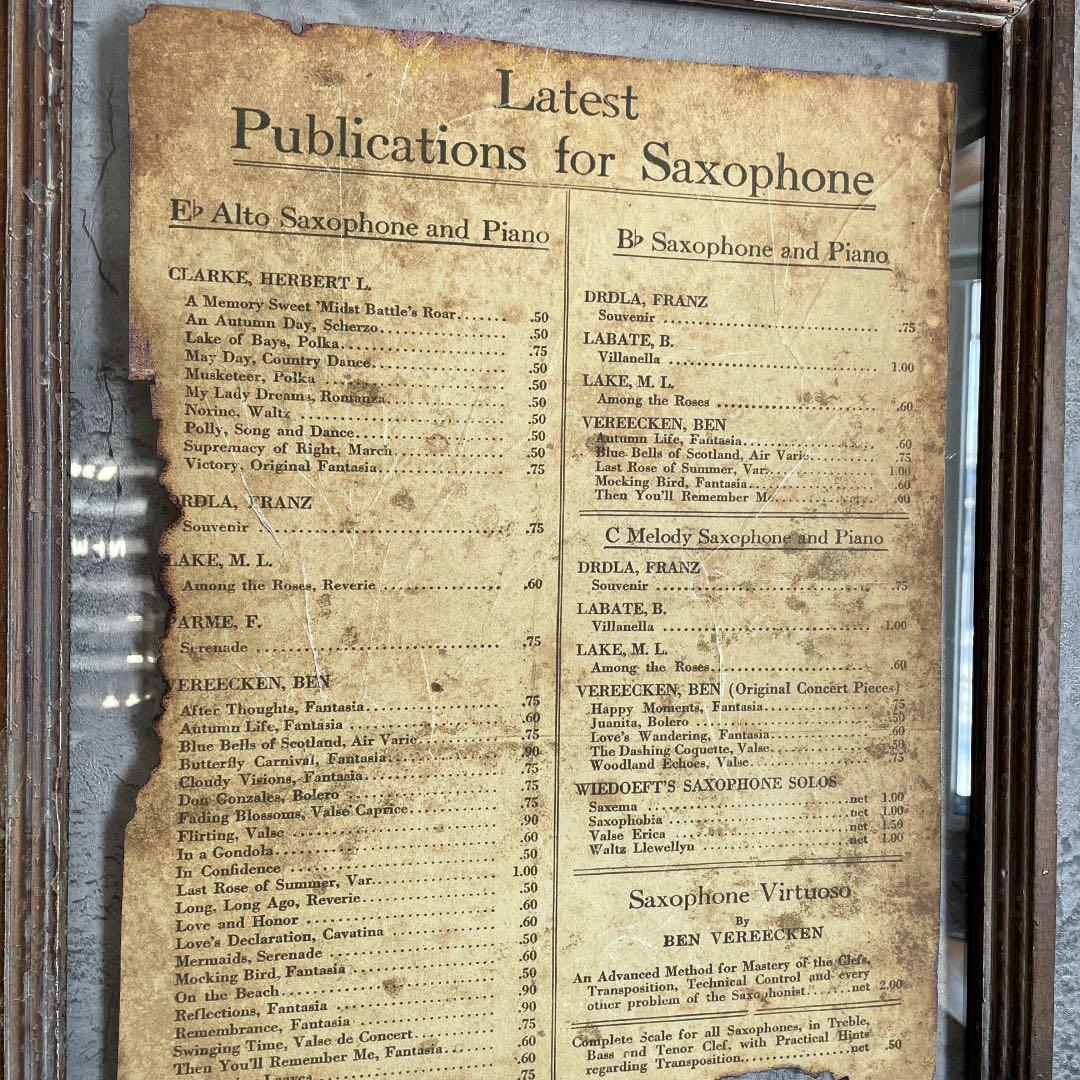 Latest
Publications for Saxophone
E♭ Alto Saxophone and Piano
CLARKE, HERBERT L.
A Memory Sweet 'Midst Battle's Roar....... .50
An Autumn Day, Scherzo................ .50
Lake of Bays, Polka..................... .75
May Day, Country Dance............... .50
Musketeer, Polka ...................... .50
My Lady Dreams, Romanza............. .50
Norine, Waltz ......................... .50
Polly, Song and Dance.................. .50
Supremacy of Right, March............. .50
Victory, Original Fantasia............... .75
DRDLA, FRANZ
Souvenir .............................. .75
LAKE, M. L.
Among the Roses, Reverie ............... .60
PARME, F.
Serenade .............................. .75
VEREECKEN, BEN
After Thoughts, Fantasia................ .75
Autumn Life, Fantasia .................. .60
Blue Bells of Scotland, Air Varie......... .75
Butterfly Carnival, Fantasia............. .90
Cloudy Visions, Fantasia................ .75
Don Gonzales, Bolero ................... .75
Fading Blossoms, Valse Caprice.......... .75
Flirting, Valse ......................... .90
In a Gondola........................... .60
In Confidence .......................... .50
Last Rose of Summer, Var............... 1.00
Long, Long Ago, Reverie................ .50
Love and Honor ........................ .60
Love's Declaration, Cavatina ............ .60
Mermaids, Serenade .................... .50
Mocking Bird, Fantasia ................. .60
On the Beach........................... .50
Reflections, Fantasia ................... .90
Remembrance, Fantasia ................. .90
Swinging Time, Valse de Concert......... .75
Then You'll Remember Me, Fantasia...... .60
Leaves .60
.75
B♭ Saxophone and Piano
DRDLA, FRANZ
Souvenir .............................. .75
LABATE, B.
Villanella ............................. 1.00
LAKE, M. L.
Among the Roses ....................... .60
VEREECKEN, BEN
Autumn Life, Fantasia................... .60
Blue Bells of Scotland, Air Varie......... .75
Last Rose of Summer, Var............... 1.00
Mocking Bird, Fantasia.................. .60
Then You'll Remember Me............... .60
C Melody Saxophone and Piano
DRDLA, FRANZ
Souvenir .............................. .75
LABATE, B.
Villanella ............................. 1.00
LAKE, M. L.
Among the Roses....................... .60
VEREECKEN, BEN (Original Concert Pieces)
Happy Moments, Fantasia............... .75
Juanita, Bolero ........................ .50
Love's Wandering, Fantasia.............. .60
The Dashing Coquette, Valse............. .50
Woodland Echoes, Valse................. .75
WIEDOEFT'S SAXOPHONE SOLOS
Saxema ...........................net 1.00
Saxophobia .......................net 1.00
Valse Erica .......................net 1.50
Waltz Llewellyn ...................net 1.00
Saxophone Virtuoso
By
BEN VEREECKEN
An Advanced Method for Mastery of the Clefs,
Transposition, Technical Control and every
other problem of the Saxophonist.......net 2.00
Complete Scale for all Saxophones, in Treble,
Bass and Tenor Clef, with Practical Hints
regarding Transposition................net .50